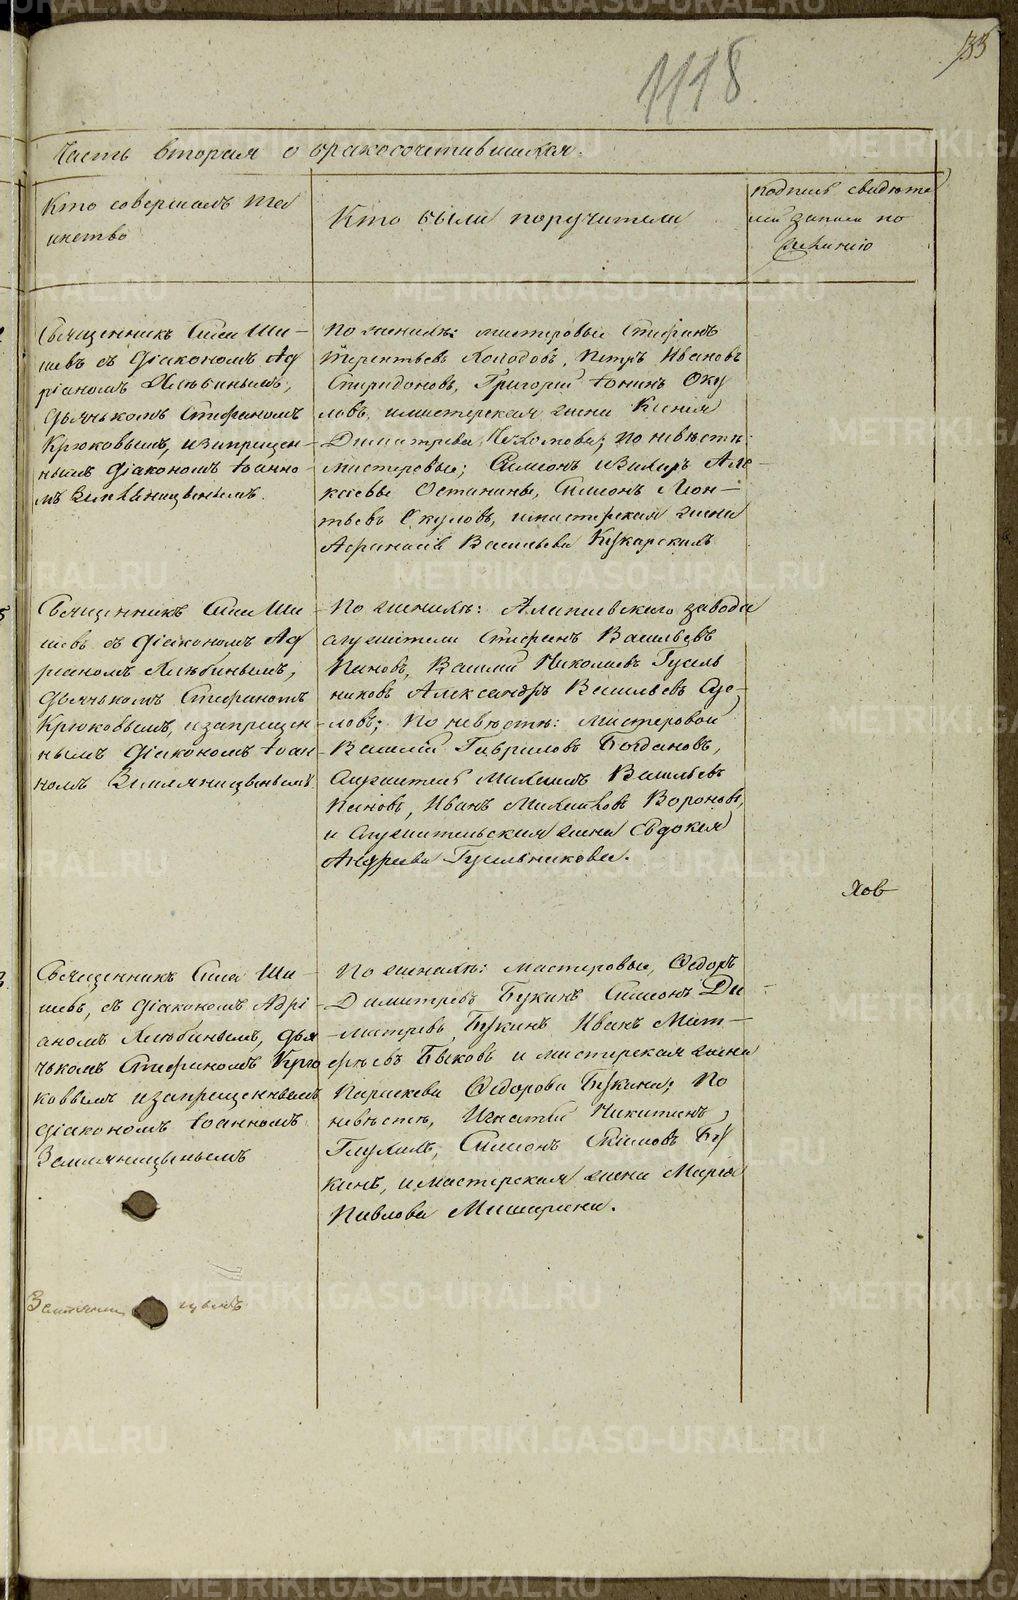 1118
135
Часть вторая о бракосочетавшихся.
Кто совершалъ таинство
Кто были поручители
подпись свидѣте
лей записи по
желанію
Священникъ Сила Ши-
шевъ съ діакономъ Ад
ріаномъ Хлюбинымъ,
дьячькомъ Стефаномъ
Крюковымъ, и запрещен-
нымъ діакономъ Іоанно
мъ Земляницынымъ.
По женихѣ: мастеровые Стефанъ
Терентьевъ Холодовъ, Петръ Ивановъ
Спиридоновъ, Григорій Іонинъ Оку
ловъ, и мастерская жена Ксенія
Димитріева; по невѣстѣ:
мастеровые; Симеонъ Але-
ксѣевы Останины, Симеонъ Леон-
тьевъ Окуловъ, и мастерская жена
Васильева
Священникъ Сила Ши
шевъ съ діакономъ Ад
ріаномъ Хлюбинымъ,
дьячькомъ Стефаномъ
Крюковымъ, и запрещен
нымъ діакономъ Іоан
номъ Земляницынымъ
По женихѣ: Алапаевскаго завода
служители Стефанъ Васильевъ
Пановъ, Василій Николаевъ Гусель
никовъ Александръ Васильевъ Сус-
ловъ; по невѣстѣ: мастеровой
Василій Гавриловъ Богдановъ,
служитель Михаилъ Васильевъ
Пановъ, Иванъ Михайловъ Вороновъ,
и служительская жена Евдокія
Андреева Гусельникова.
ховъ
Священникъ Сила Ши
шевъ, съ діакономъ Адрі
аномъ Хлюбинымъ, дья
чькомъ Стефаномъ Крю
ковымъ и запрещеннымъ
діакономъ Іоанномъ
Земляницынымъ
По женихѣ: мастеровые, Ѳедоръ
Димитріевъ Букинъ Симеонъ Ди
митріевъ Букинъ Иванъ Мат-
фѣевъ Быковъ и мастерская жена
Параскева Ѳедорова Букина; по
невѣстѣ, Игнатій Никитинъ
Глухихъ, Симеонъ Бу
кинъ, и мастерская жена Марія
Павлова Мишарина.
Земляни цынъ
METRIKI.GASO-URAL.RU